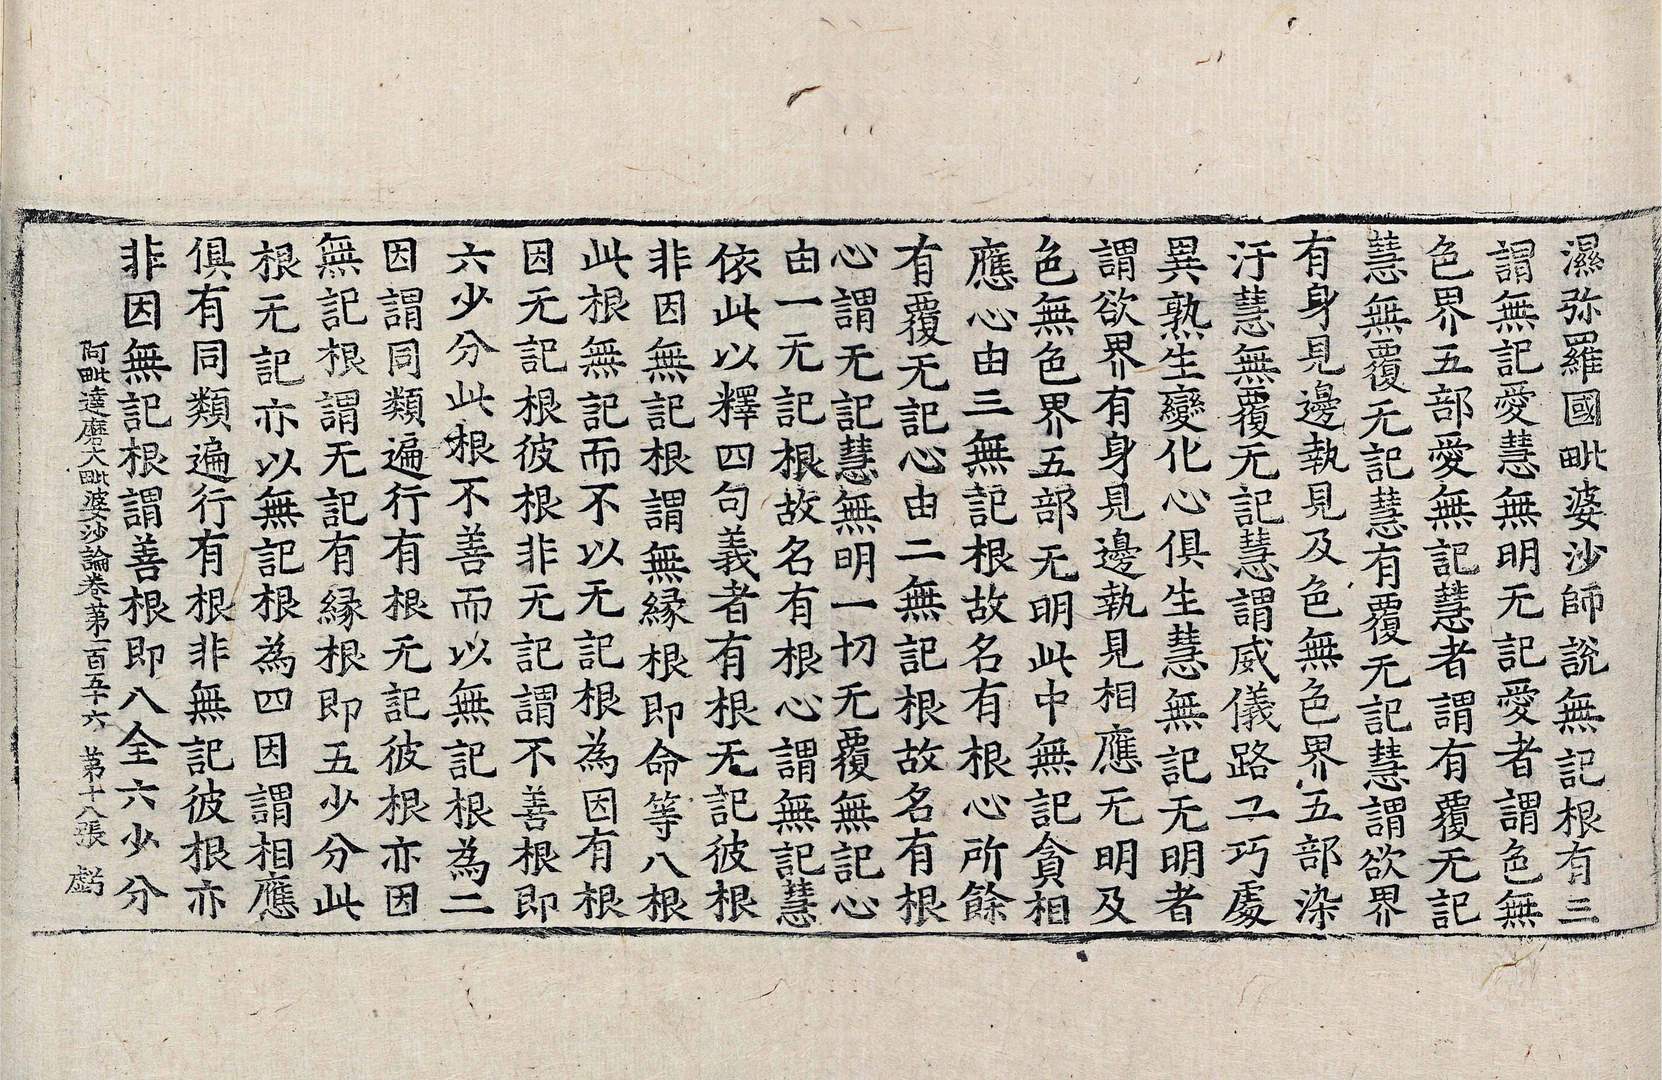 濕弥羅國毗婆沙師說無記根有三
謂無記愛慧無明无記愛者謂色無
色界五部愛無記慧者謂有覆无記
慧無覆无記慧有覆无記慧謂欲界
有身見邊執見及色無色界五部染
汙慧無覆无記慧謂威儀路工巧處
異熟生變化心俱生慧無記无明者
謂欲界有身見邊執見相應无明及
色無色界五部无明此中無記貪相
應心由三無記根故名有根心所餘
有覆无記心由二無記根故名有根
心謂无記慧無明一切无覆無記心
由一无記根故名有根心謂無記慧
依此以釋四句義者有根无記彼根
非因無記根謂無緣根即命等八根
此根無記而不以无記根為因有根
因无記根彼根非无記謂不善根即
六少分此根不善而以無記根為二
因謂同類遍行有根无記彼根亦因
無記根謂无記有緣根即五少分此
根无記亦以無記根為四因謂相應
俱有同類遍行有根非無記彼根亦
非因無記根謂善根即八全六少分
阿毗達磨大毗婆沙論卷第一百五十六 第十八張 虧